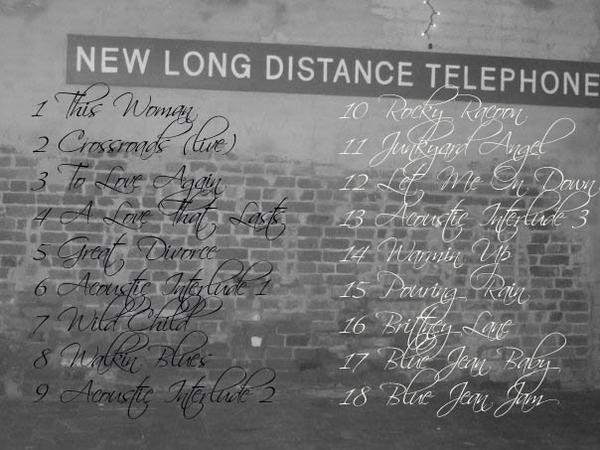 NEW LONG DISTANCE TELEPHONE
1 This Woman
2 Crossroads (live)
3 To Love Again
4 A Love That Lasts
5 Great Divorce
6 Acoustic Interlude 1
7 Wild Child
8 Walkin Blues
9 Acoustic Interlude 2
10 Rocky Racoon
11 Junkyard Angel
12 Let Me On Down
13 Acoustic Interlude 3
14 Warmin Up
15 Pouring Rain
16 Brittney Lane
17 Blue Jean Baby
18 Blue Jean Jam